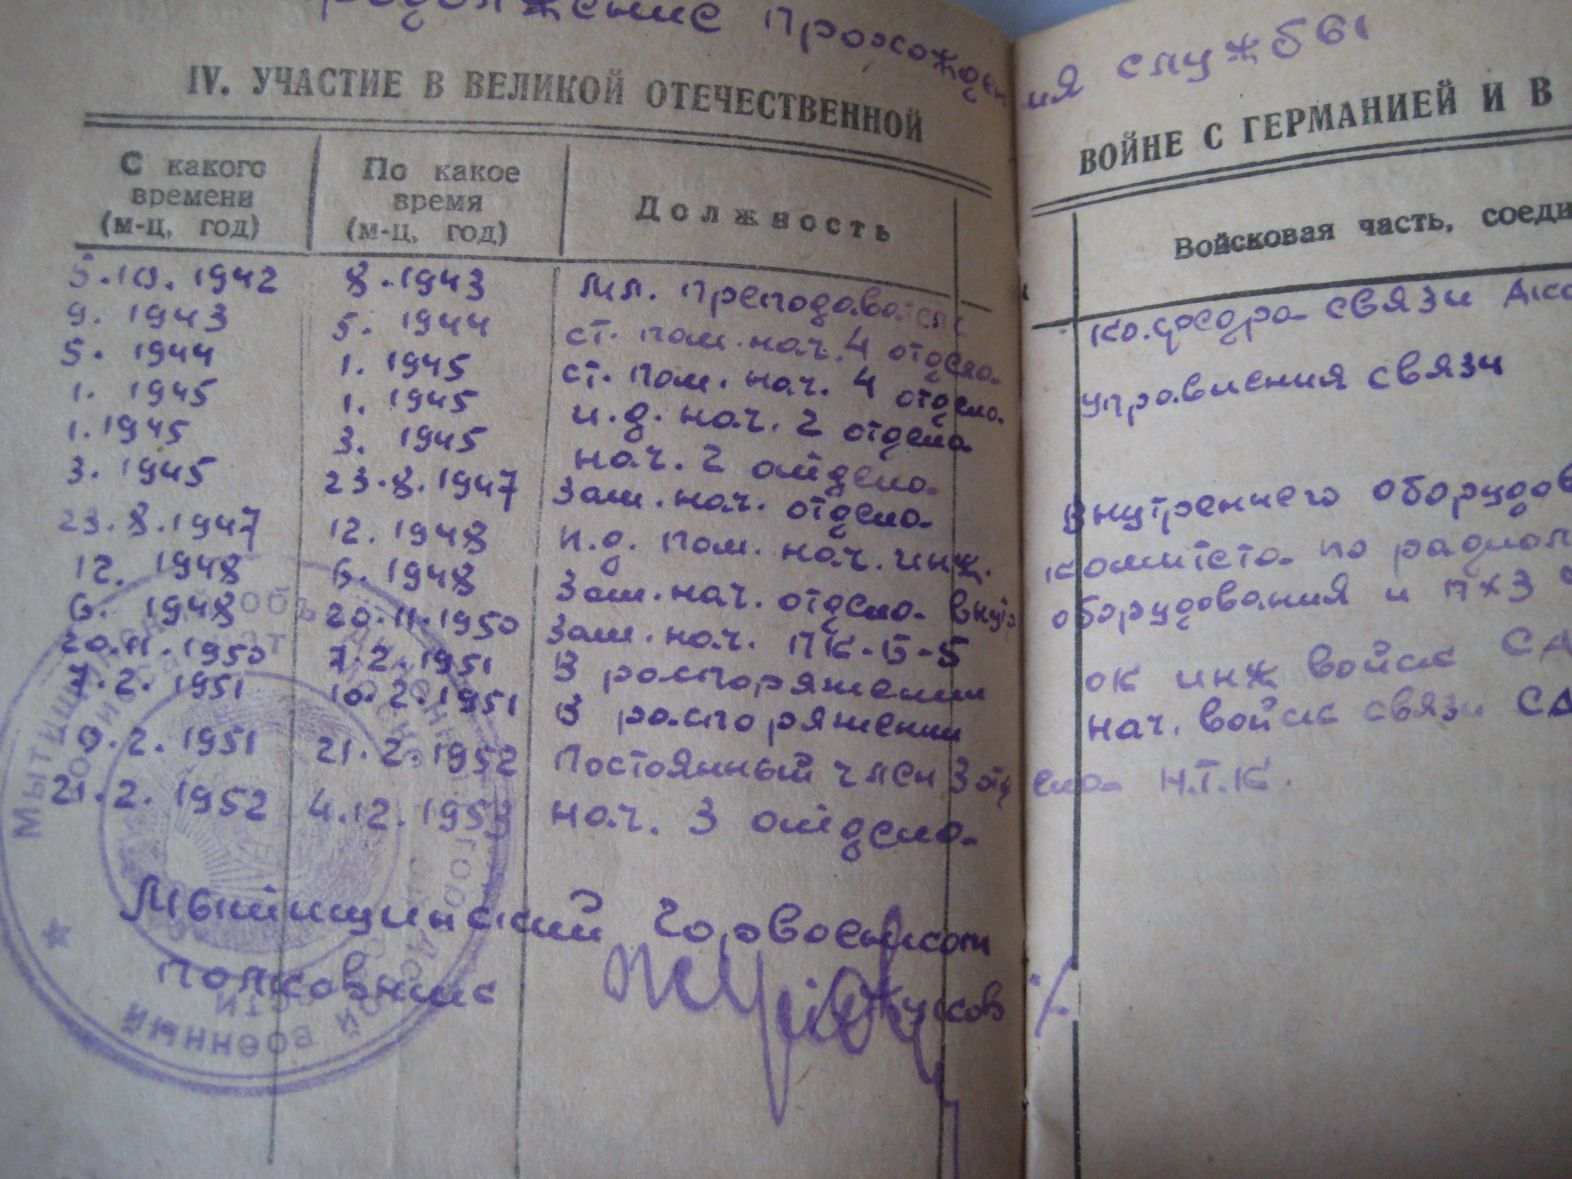 Продолжение прохождения службы
IV. УЧАСТИЕ В ВЕЛИКОЙ ОТЕЧЕСТВЕННОЙ ВОЙНЕ С ГЕРМАНИЕЙ И В
С какого времени (м-ц, год) По какое время (м-ц, год) Должность Войсковая часть, соеди
5.10.1942 8.1943 Мл. преподаватель кафедра связи
9. 1943 5. 1944 ст. пом. нач. 4 отдела управления связи
5. 1944 1. 1945 ст. пом. нач. 4 отдела
1. 1945 1. 1945 и.д. нач. 2 отдела
1. 1945 3. 1945 нач. 2 отдела
3. 1945 23.8.1947 Зам. нач. отдела Внутреннего оборудов
23.8.1947 12. 1948 и.д. пом. нач. инж. комитета по
12. 1948 6. 1948 Зам. нач. отдела внутр оборудования и ПХЗ
6. 1948 20.11.1950 Зам. нач. ПК-Б-5
20.11.1950 7.2.1951 В распоряжении ок инж войск
7.2.1951 10.2.1951 В распоряжении нач. войск связи
9.2.1951 21.2.1952 Постоянный член 3 отдела Н.Т.К.
21.2.1952 4.12.1953 нач. 3 отдела
Мытищинский Горвоенком
полковник Жуков